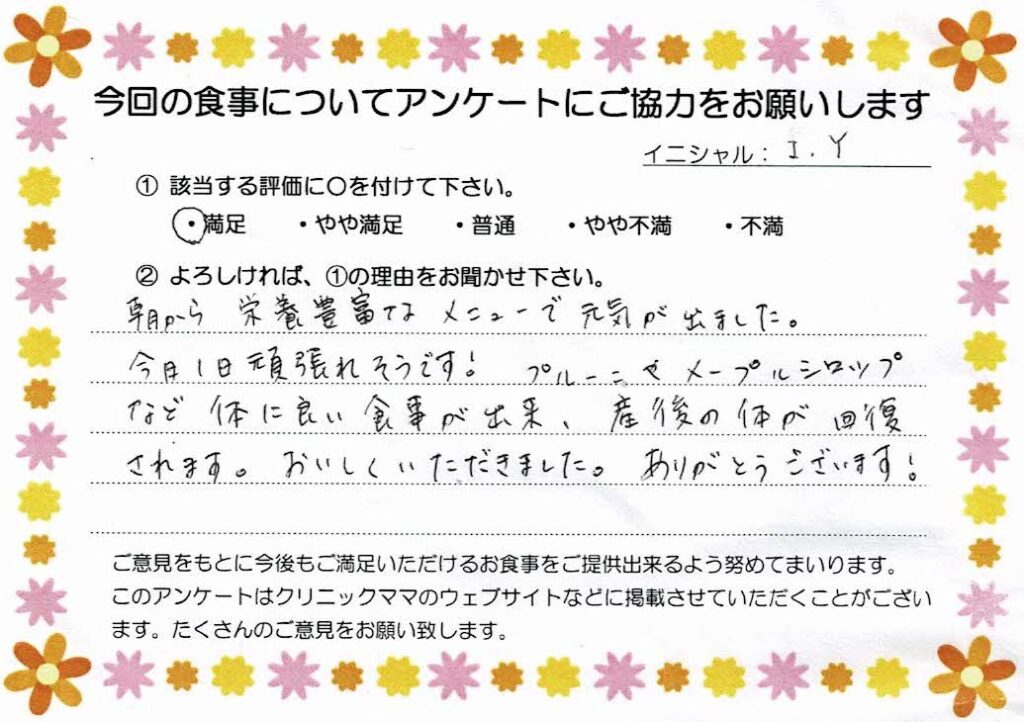 今回の食事についてアンケートにご協力をお願いします
イニシャル： I.Y
① 該当する評価に〇を付けて下さい。
・満足 ・やや満足 ・普通 ・やや不満 ・不満
② よろしければ、①の理由をお聞かせ下さい。
朝から 栄養豊富な メニューで 元気が 出ました。
今日1日頑張れそうです! プルーンや メープルシロップ
など 体に良い 食事が出来、 産後の体が 回復
されます。 おいしくいただきました。 ありがとうございます!
ご意見をもとに今後もご満足いただけるお食事をご提供出来るよう努めてまいります。
このアンケートはクリニックママのウェブサイトなどに掲載させていただくことがござい
ます。たくさんのご意見をお願い致します。